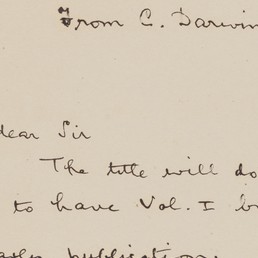 From C. Darwin
dear Sir
The title will do
to have Vol. I
publication